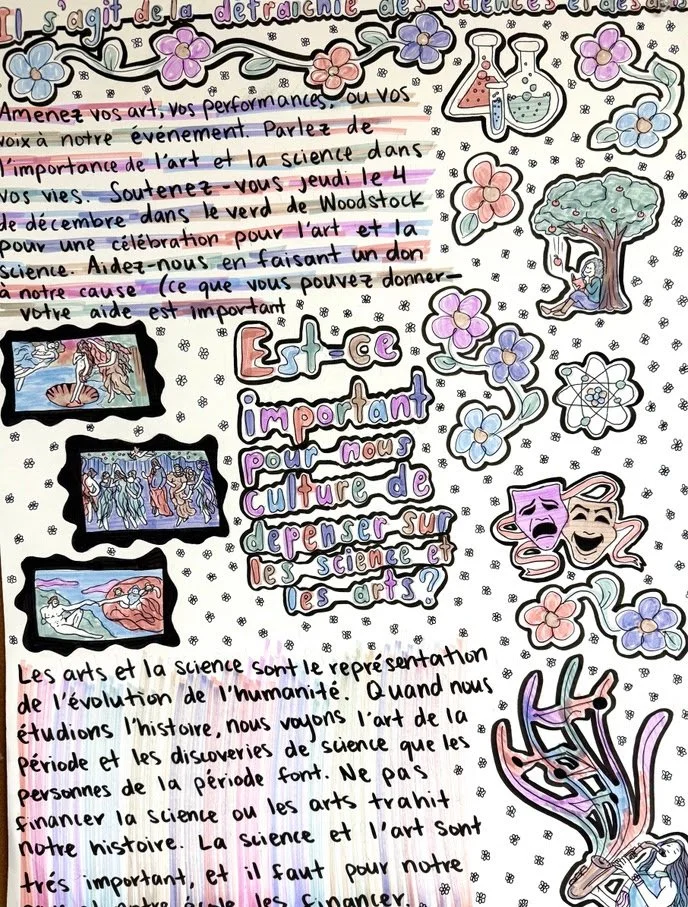 Il s'agit de la détraichie des sciences et des arts
Amenez vos art, vos performances, ou vos
voix à notre événement. Parlez de
l'importance de l'art et la science dans
vos vies. Soutenez-vous jeudi le 4
de décembre dans le verd de Woodstock
pour une célébration pour l'art et la
science. Aidez-nous en faisant un don
à notre cause (ce que vous pouvez donner—
votre aide est important
Est-ce
important
pour nous
culture de
depenser sur
les science et
les arts?
Les arts et la science sont le représentation
de l'évolution de l'humanité. Quand nous
étudions l'histoire, nous voyons l'art de la
période et les discoveries de science que les
personnes de la période font. Ne pas
financer la science ou les arts trahit
notre histoire. La science et l'art sont
trés important, et il faut pour notre
les financer.